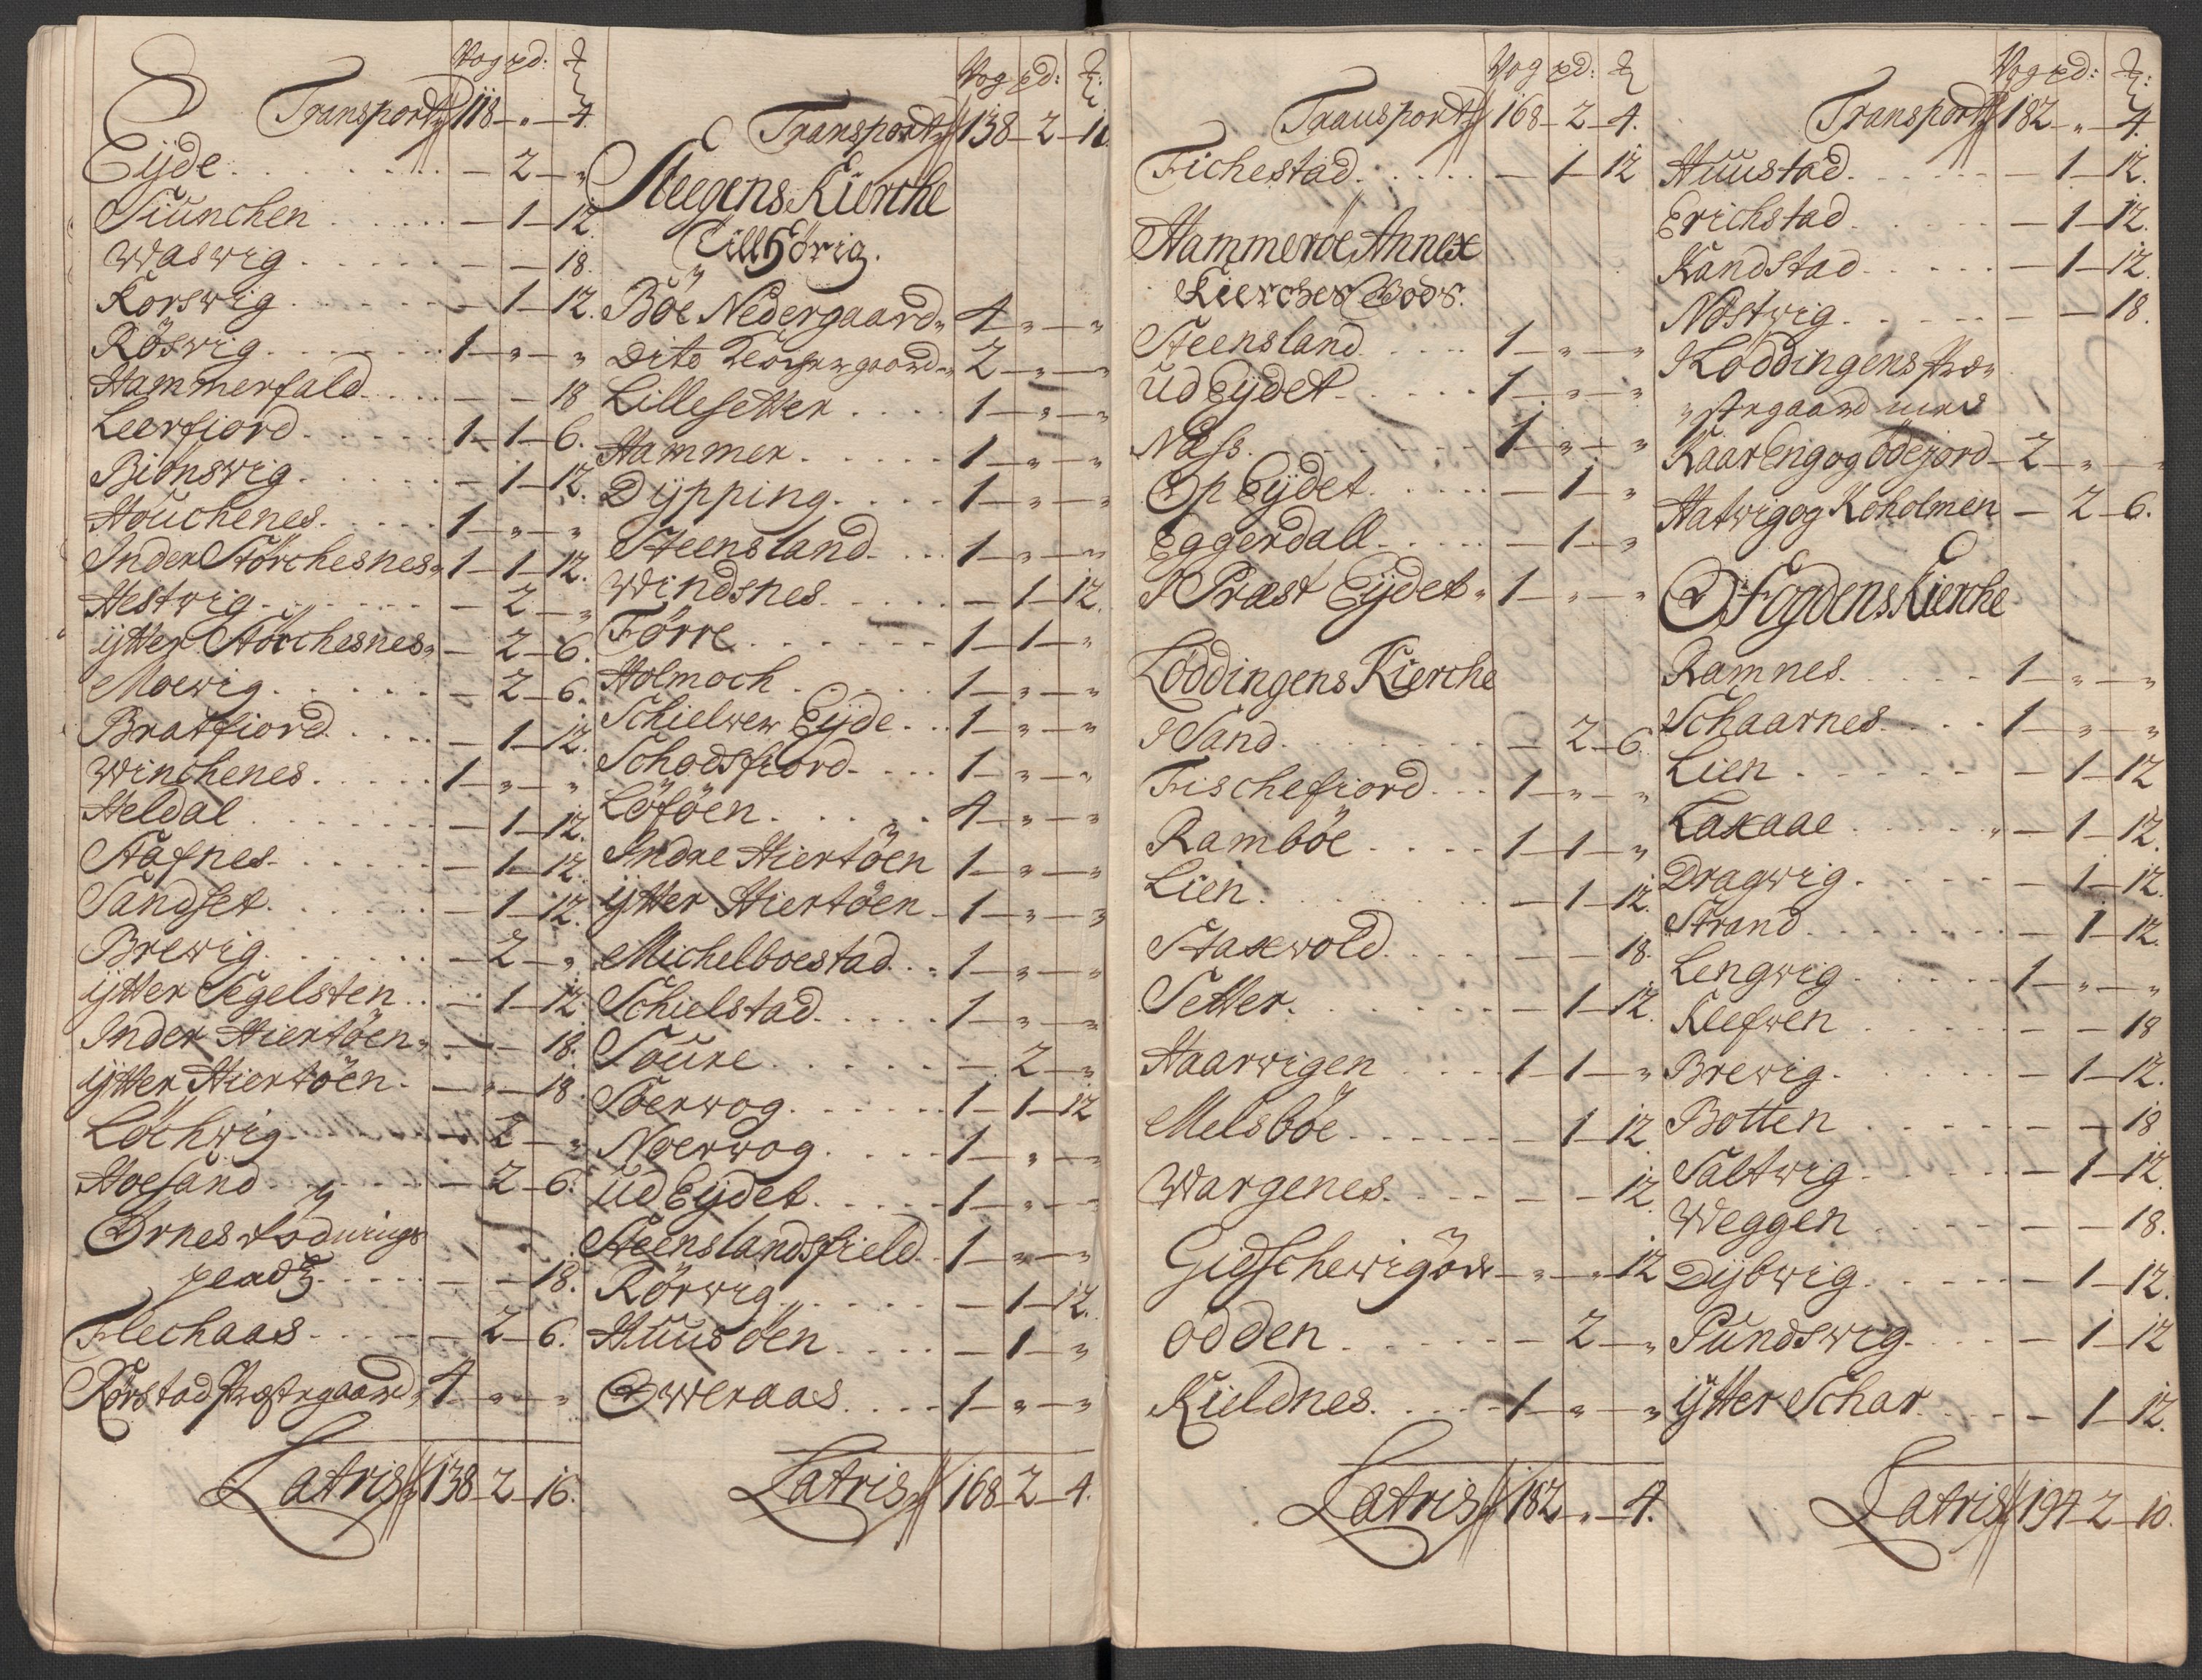 Vog pd: ℔
Transport 118 - „ - 4.
Eijde - 2 - „
Siünchen - 1 - 12.
Waswig - - 18.
Korswig - 1 - 12.
Röswig 1 - „ - „
Hammerfald - - 18
Leerfiord 1 - 1 - 6.
Biönswig - 1 - 12.
Houchenes 1 - „ - „
Inder Störchesnes 1 - 1 - 12.
Hestwig - 2 - „
ijtter Störchesnes - 2 - 6.
Moewig - 2 - 6.
Bratfiord - 1 - 12.
Winchenes 1 - „ - „
Heldal - 1 - 12.
Stafnes - 1 - 12.
Sandset - 1 - 12.
Brewig - 2 - „
ijtter Segelsten - 1 - 12.
Inder Hiertöen - - 18.
ijtter Hiertöen - „ - 18.
Löchwig - 2 - „
Hoesand - 2 - 6.
Örnes
- - 18.
Flechaas - 2 - 6.
Körstad Præstegaard 4 - „ - „
Latris 138 - 2 - 16.
Vog pd: ℔:
Transport 138 - 2 - 16.
Steegens Kierche
Tillhörig.
Böe Nedergaard 4 - „ - „
Dito 2 - „ - „
Lillesetter 1 - „ - „
Hammer 1 - „ - „
Dijpping 1 - „ - „
Steensland 1 - „ - „
Windsnes - 1 - 12.
Förre 1 - 1 - „
Holmoch 1 - „ - „
Schielwer Eijde 1 - „ - „
Schodsfiord 1 - „ - „
Löföen 4 - „ - „
Indre Hiertöen 1 - „ - „
ijtter Hiertöen 1 - „ - „
Michelboestad 1 - „ - „
Schielstad 1 - „ - „
Soure - 2 - „
Söerwog 1 - 1 - 12
Noerwog 1 - „ - „
Ud Eijdet 1 - „ - „
Steenslandsfield 1 - „ - „
Rörwig - 1 - 12.
Huusöen - 1 - „
Öwweraas 1 - „ - „
Latris 168 - 2 - 4.
Vog pd: ℔
Transport 168 - 2 - 4.
Fichestad - 1 - 12
Hammeröe Annex
Kierches Bods.
Steensland 1 - „ - „
Ud Eijdet 1 - „ - „
Næss 1 - „ - „
Op Eijdet - 1 - „
Eggerdall - 1 - „
I Præst Eijdet 1 - „ - „
Löddingens Kierche
I Sand - 2 - 6.
Fischefiord 1 - „ - „
Ramböe 1 - 1 - „
Lien - 1 - 12.
Staxwold - - 18.
Setter - 1 - 12.
Haarwigen 1 - 1 - „
Melsböe - 1 - 12.
Wargenes - - 12.
Gidschewigör - „ - 12
Odden - 2 - „
Kieldnes 1 - „ - „
Latris 182 - „ - 4.
Vog pd: ℔:
Transport 182 - „ - 4.
Huustad - 1 - 12.
Erichstad - 1 - 12.
Kandstad - 1 - 12.
Nöstwig - - 18.
Löddingens Præ-
stegaard med
Kaarengog Ödejord 2 - „ - „
Hatwigog Koholmen - 2 - 6.
O Fogdens Kierche
Ramnes 1 - „ - „
Schaarnes 1 - „ - „
Lien - 1 - 12
Laxaae - 1 - 12.
Dragwig - 1 - 12.
Strand - 1 - 12.
Lengwig 1 - „ - „
Klefwen - - 18
Brewig - 1 - 12.
Botten - - 18
Saltwig - 1 - 12.
Weggen - - 18.
Dijbwig - 1 - 12.
Pundswig - 1 - 12
ijtter Schar - 1 - 12.
Latris 194 - 2 - 10.